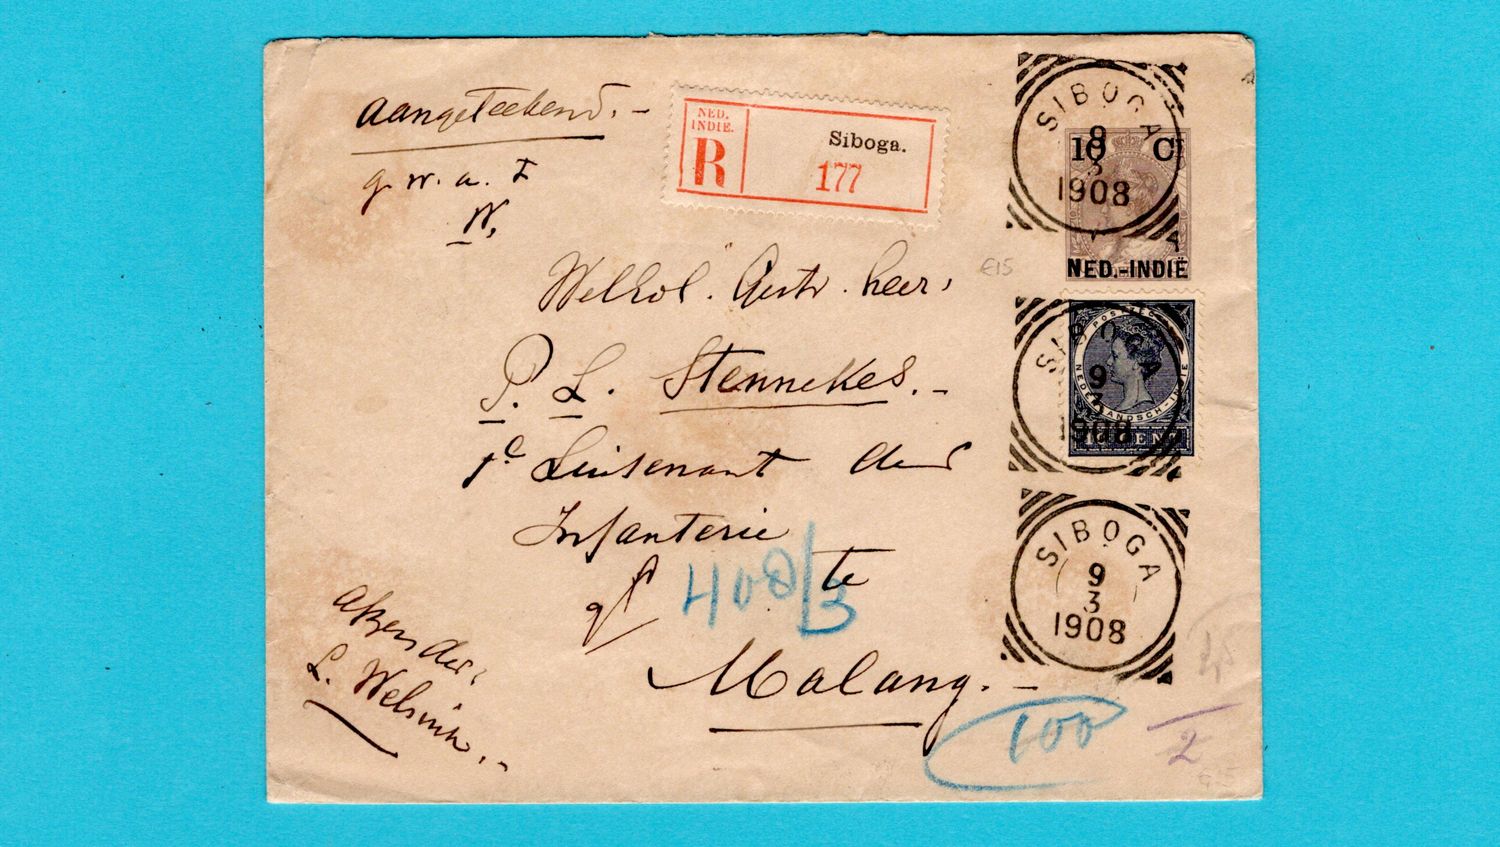 aangeteekend. -
g. w. a. I
W,
NED.
INDIE.
R
Siboga.
177
SIBOGA
9
3
1908
10 C
NED.-INDIË
€15
Welkol. Gestr. heer,
P. L. Stennekes. -
1e Luitenant der
Infanterie
te
Malang. -
SIBOGA
9
3
1908
POSTZEGEL
NEDERLANDSCH-INDIE
CENT
SIBOGA
9
3
1908
408/3
100
2
€15
afzender:
L. Welsink. -